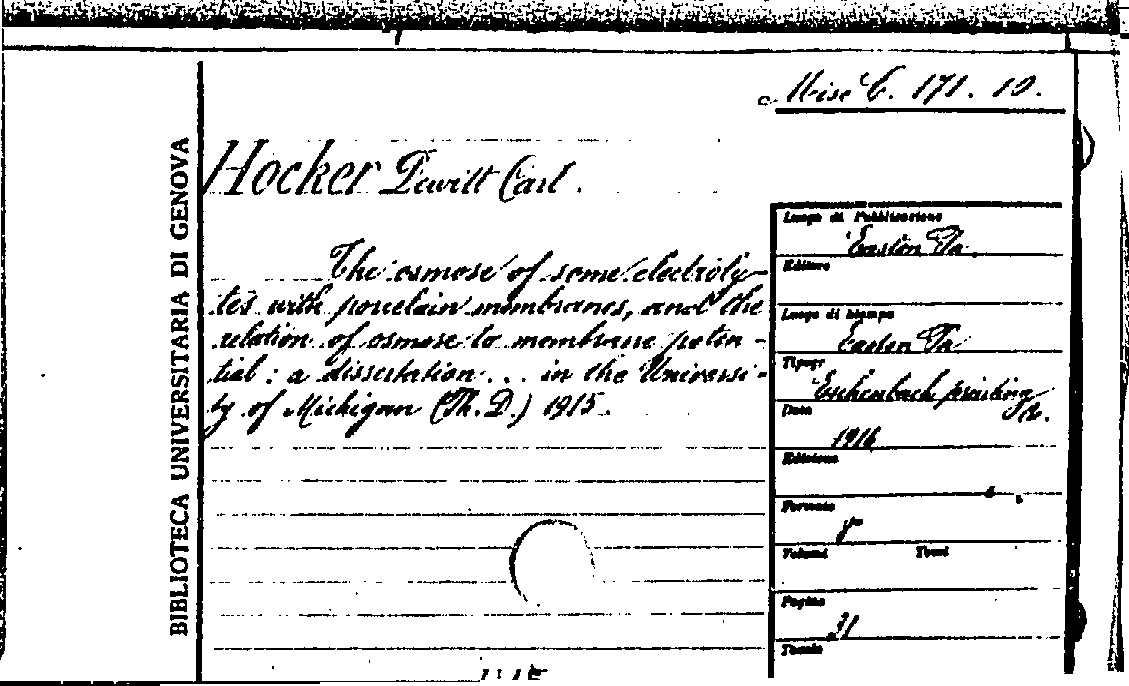 Misc C. 171. 10.
BIBLIOTECA UNIVERSITARIA DI GENOVA
Hocker Dewitt Carl.
The osmose of some electroly-
tes with porcelain membranes, and the
relation of osmose to membrane poten-
tial : a dissertation ... in the Universi-
ty of Michigan (Ph. D.) 1915.
Luogo di Pubblicazione
Easton Pa.
Editore
Luogo di stampa
Easton Pa
Tipogr
Eschenbach printing
Co.
Data
1916
Edizione
Formato
8°
Volumi Tomi
Pagine
31
Tavole